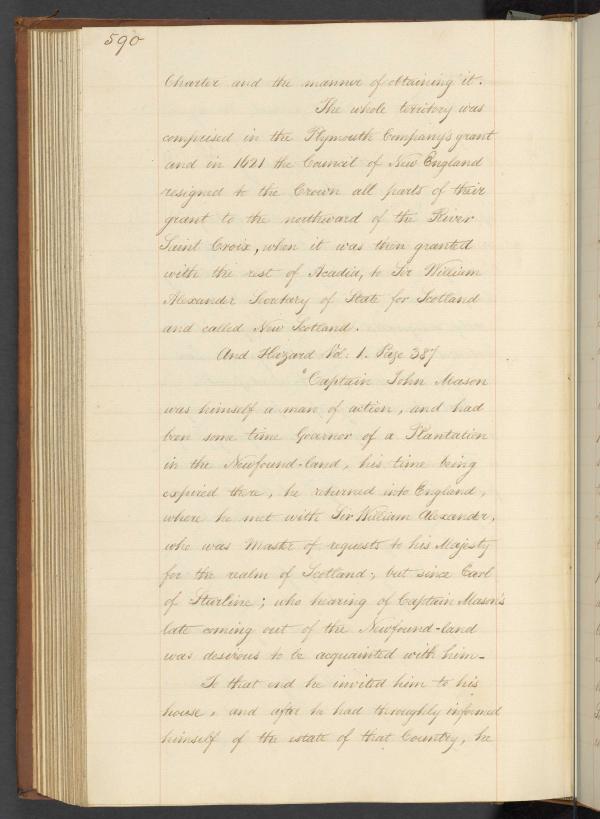 590
Charter and the manner of obtaining it.
The whole territory was
comprised in the Plymouth Company's grant
and in 1621 the Council of New England
resigned to the Crown all parts of their
grant to the northward of the River
Saint Croix, when it was then granted
with the rest of Acadia, to Sir William
Alexander Secretary of State for Scotland
and called New Scotland.
And Hazard Vol: 1. Page 387
"Captain John Mason
was himself a man of action, and had
been some time Governor of a Plantation
in the Newfound-land, his time being
expired there, he returned into England,
where he met with Sir William Alexander,
who was Master of requests to his Majesty
for the realm of Scotland; but since Earl
of Starline; who hearing of Captain Mason's
late coming out of the Newfound-land
was desirous to be acquainted with him-
To that end he invited him to his
house, and after he had thoroughly informed
himself of the estate of that Country, he